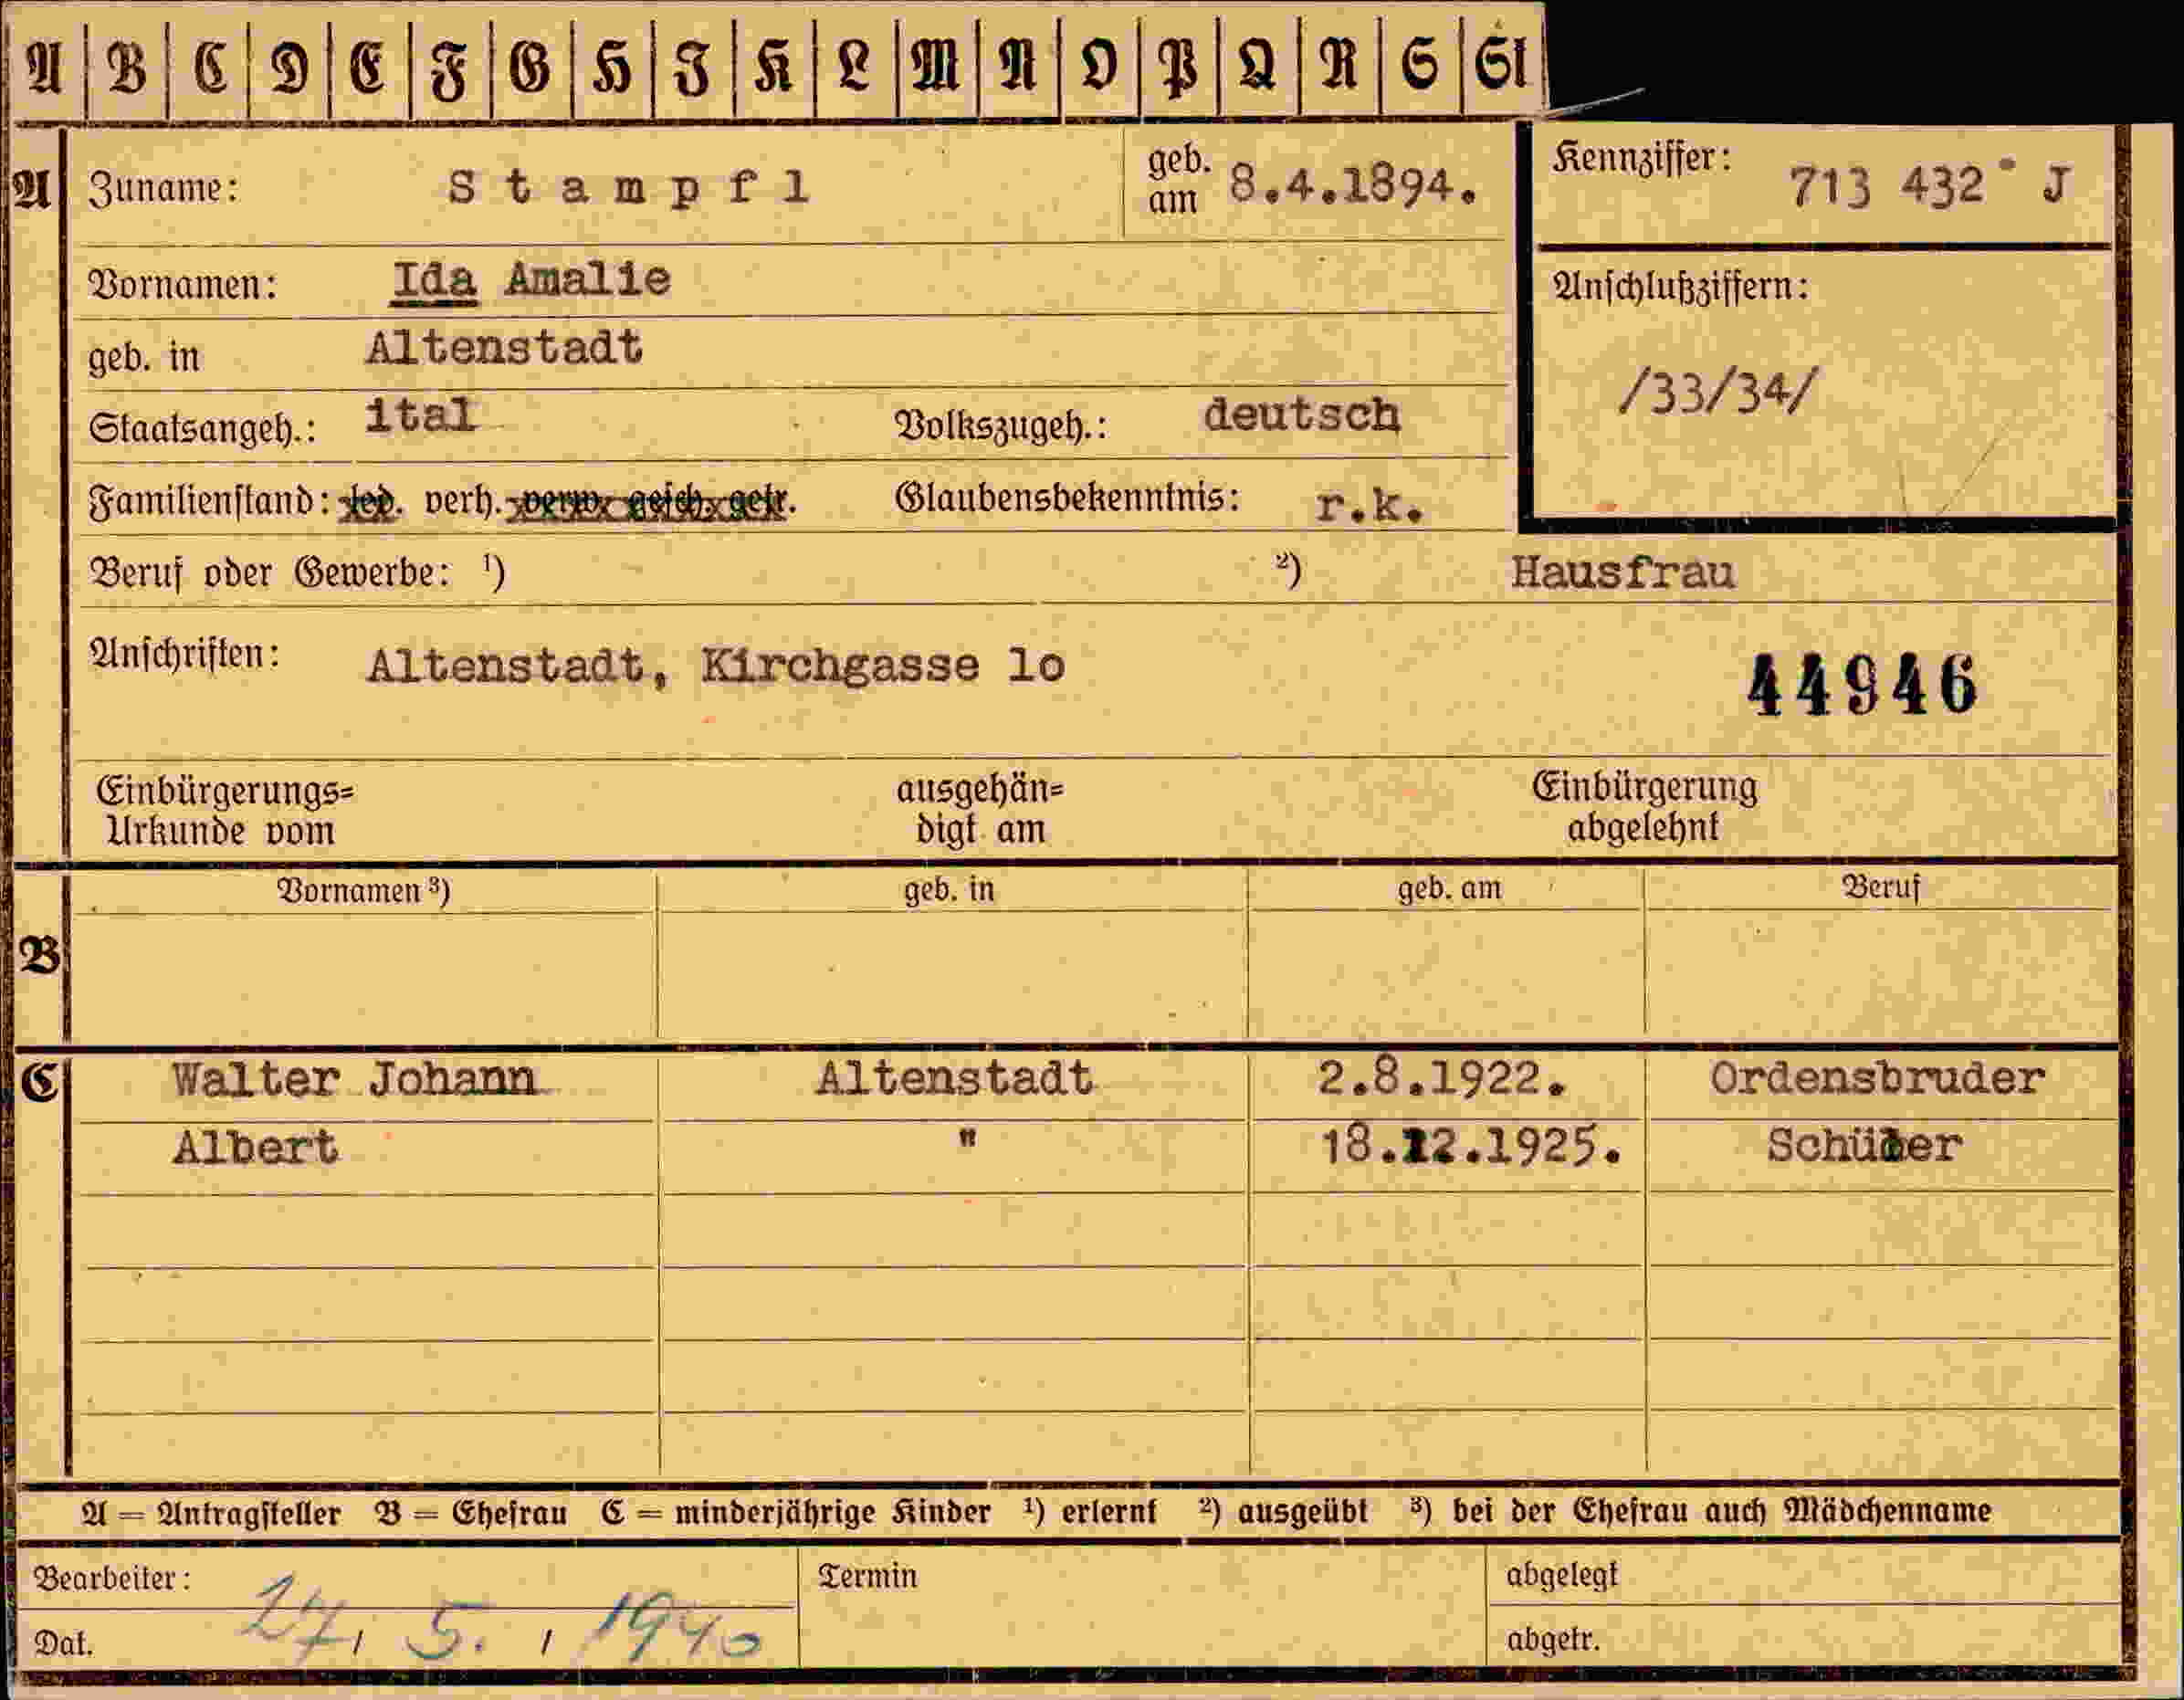 A B C D E F G H I K L M N O P Q R S St
A Zuname: Stampfl geb. am 8.4.1894. Kennziffer: 713 432 J
Vornamen: Ida Amalie
Anschlußziffern:
geb. in Altenstadt
/33/34/
Staatsangeh.: ital Volkszugeh.: deutsch
Familienstand: led. verh. verw. gesch. getr. Glaubensbekenntnis: r.k.
Beruf oder Gewerbe: ¹) ²) Hausfrau
Anschriften: Altenstadt, Kirchgasse 1o
44946
Einbürgerungs= ausgehän= Einbürgerung
Urkunde vom digt am abgelehnt
Vornamen ³) geb. in geb. am Beruf
B
C Walter Johann Altenstadt 2.8.1922. Ordensbruder
Albert " 18.12.1925. Schüler
A = Antragsteller B = Ehefrau C = minderjährige Kinder ¹) erlernt ²) ausgeübt ³) bei der Ehefrau auch Mädchenname
Bearbeiter: Termin abgelegt
Dat. 27. 5. 1940 abgetr.